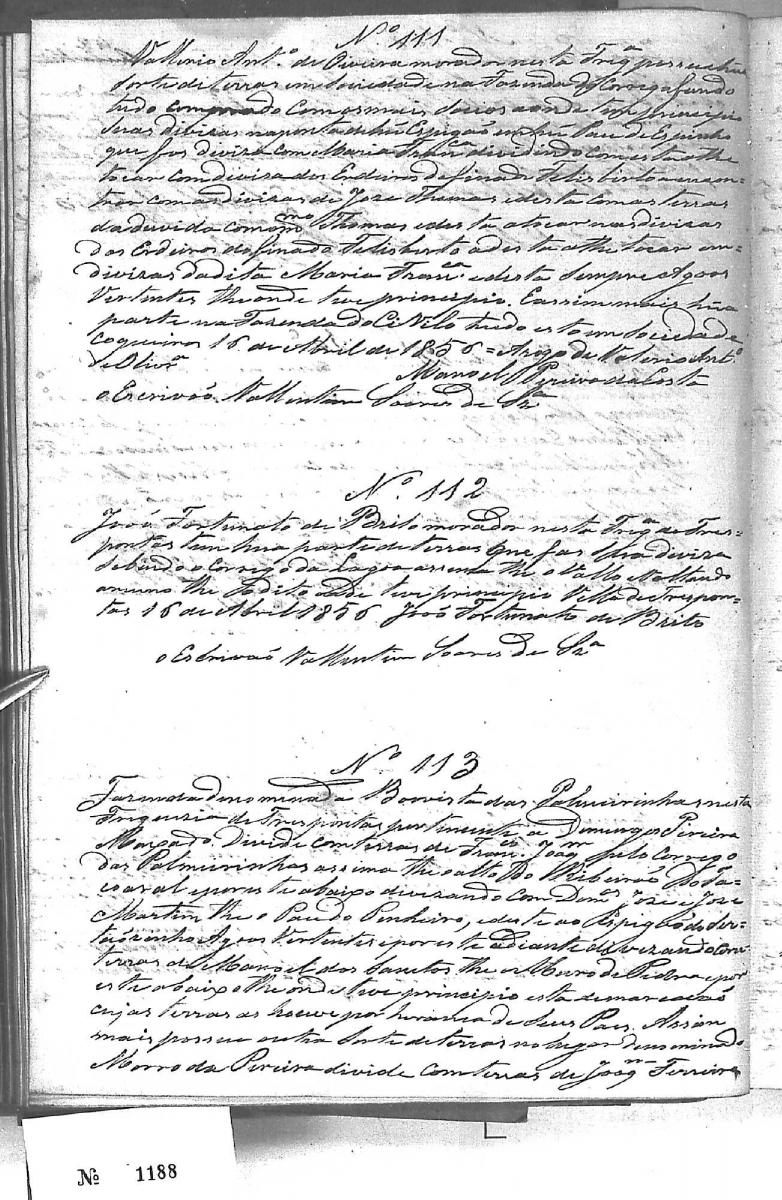 Nº 111
Vallerio Antº de Oliveira morador nesta Frigª possue hua
sorte de terras em Sociedade na Fazenda do Corrego fundo
tudo comprado com os mais Socios aonde teve principio
suas divizas na ponta de hu Espigão em hu Pau de Espinho
que fas diviza com Maria Francª dividindo com esta athe
tocar com diviza dos Erdeiros do finado Felisbirto a encon-
trar com as divizas de Joze Thomas e desta com as terras
da devida com o mmo Thomas e desta a tocar nas divizas
dos Erdeiros do finado Felisberto a desta athe tocar em
divizas da dita Maria Francª e desta sempre Agoas
Vertentes the onde teve principio. E assim mais hua
parte na Fazenda do tudo esto em Sociedade
Coqueiros 16 de Abril de 1856 = Arogo de Valerio Antº
de Olivrª
Manoel Pereira da Costa
o Escrivaó Vallentim Soares de Szª
Nº 112
Joaó Fortunato de Brito morador nesta Frigª de Tres-
pontas tem hua parte de terras que fas diviza
o Corrego da Lagoa assima the o Vallo Voltando
the o dito teve principio Villa de Trespon-
tas 16 de Abril 1856 Joaó Fortunato de Brito
o Escrivaó Vallentim Soares de Szª
Nº 113
Fazenda denominada Boavista das Palmeirinhas nesta
Friguezia de Tres pontas pertincente a Domingos Pireira
Maxado. Divide com terras de Francº Joaqm pelo Corrego
das Palmeirinhas assima the o alto do Ribeiraó do Ja-
caral e por este abaixo divizando com Domos Joze e Joze
Martim the o Pau do Pinheiro, e deste ao Espigaó do Ser-
taózinho Agoas Vertentes e por este adiante divizando com
terras de Manoel dos Sanctos the o Muro de Pedra e por
este abaixo the onde teve principio esta demarcacaó
cujas terras as houve por heranca de Seus Pais. Assim
mais possue outra Sorte de terras no lugar denominado
Morro da Pereira divide com terras de Joaqm Ferreira
Nº 1188